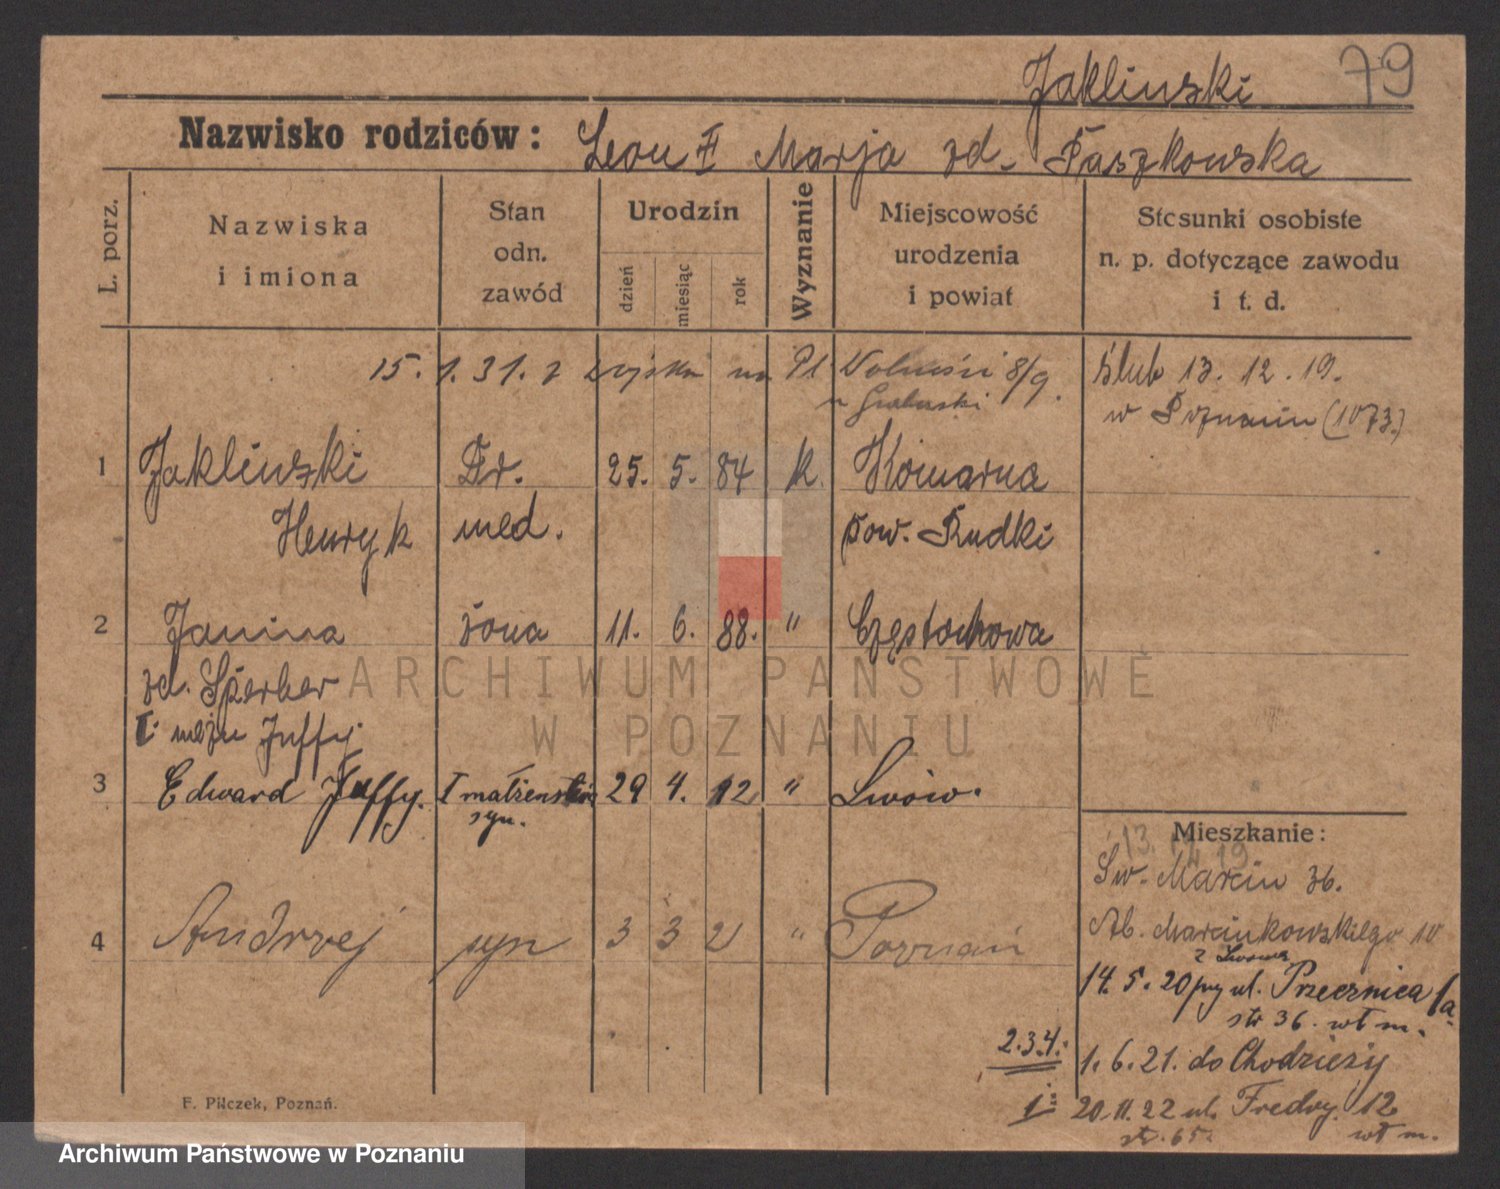 Jakliński 79
Nazwisko rodziców: Leon i Marja zd. Paszkowska
L. porz.
Nazwiska
i imiona
Stan
odn.
zawód
Urodzin
dzień
miesiąc
rok
Wyznanie
Miejscowość
urodzenia
i powiat
Stosunki osobiste
n. p. dotyczące zawodu
i t. d.
15. 1. 31. z wojska na Pl Wolności 8/9.
u Grabarski
ślub 13. 12. 19.
w Poznaniu (1073.)
1 Jakliński Dr. 25. 5. 84 k. Komarna
Henryk med. pow. Rudki
2 Janina żona 11. 6. 88. " Częstochowa
zd. Sperber
I. mężu Juffy
3 Edward Juffy. I małżeństwa 29 4. 12 " Lwów.
syn.
4 Andrzej syn 3 3 21 " Poznań
Mieszkanie:
13. 12 19
Św. Marcin 36.
Al. Marcinkowskiego 10
z Lwowa
14. 5. 20 przy ul. Przecznica 1a.
str 36. wł m.
2.3.4. 1. 6. 21. do Chodzieży
1: 20.11.22 ul. Fredry 12
str. 65. wł m.
F. Pilczek, Poznań.
ARCHIWUM PAŃSTWOWE
W POZNANIU
Archiwum Państwowe w Poznaniu